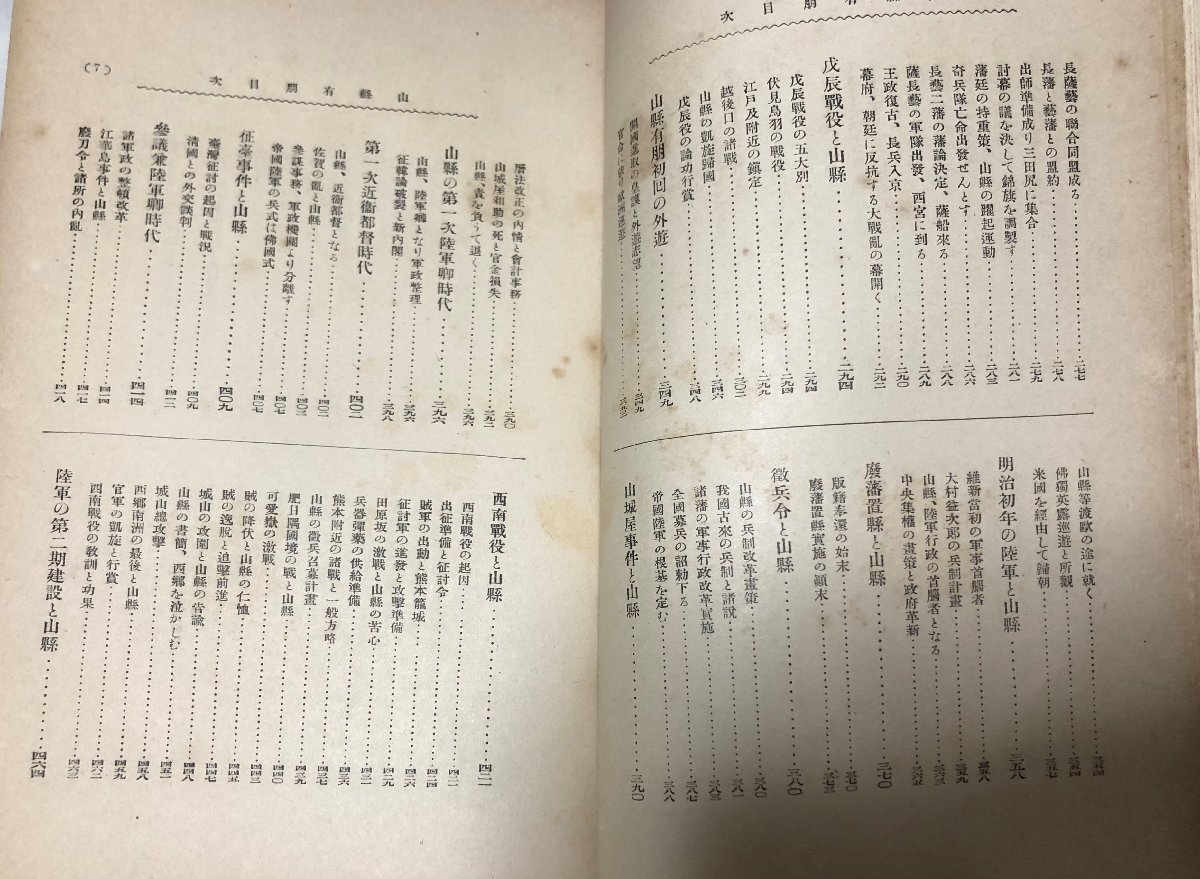 山縣有朋目次
長薩藝の聯合同盟成る……二七七
長藩と藝藩との盟約……二七八
出師準備成り三田尻に集合……二七九
討幕の議を決して錦旗を調製す……二八一
藩廷の持重策、山縣の躍起運動……二八三
奇兵隊亡命出發せんとす……二八六
長藝二藩の藩論決定、薩船來る……二八八
薩長藝の軍隊出發、西宮に到る……二八九
王政復古、長兵入京……二九〇
幕府、朝廷に反抗する大戰亂の幕開く……二九二
戊辰戰役と山縣……二九四
戊辰戰役の五大別……二九四
伏見鳥羽の戰役……二九四
江戸及附近の鎭定……二九九
越後口の諸戰……三〇二
山縣の凱旋歸國……三四六
戊辰役の論功行賞……三四八
山縣有朋初回の外遊……三四九
開國進取の皇謨と外遊志望……三四九
山縣等渡歐の途に就く……三五四
佛獨英露巡遊と所觀……三五四
米國を經由して歸朝……三五七
明治初年の陸軍と山縣……三五八
維新當初の軍事首腦者……三五八
大村益次郎の兵制計畫……三五九
山縣、陸軍行政の首腦者となる……三六三
中央集權の畫策と政府革新……三六六
廢藩置縣と山縣……三七〇
版籍奉還の始末……三七〇
廢藩置縣實施の顚末……三七三
徵兵令と山縣……三八〇
山縣の兵制改革畫策……三八〇
我國古來の兵制と諸說……三八一
諸藩の軍事行政改革實施……三八三
全國募兵の詔勅下る……三八七
帝國陸軍の根基を定む……三八八
山城屋事件と山縣……三九〇
山縣有朋目次
(7)
曆法改正の內情と會計事務……三九〇
山城屋和助の死と官金損失……三九二
山縣、責を負うて退く……三九六
山縣の第一次陸軍卿時代……三九六
山縣、陸軍卿となり軍政整理……三九六
征韓論破裂と新內閣……三九八
第一次近衞都督時代……四〇二
山縣、近衞都督となる……四〇二
佐賀の亂と山縣……四〇二
參謀事務、軍政機關より分離す……四〇三
帝國陸軍の兵式は佛國式……四〇七
征臺事件と山縣……四〇九
臺灣征討の起因と戰況……四〇九
淸國との外交談判……四一二
參議兼陸軍卿時代……四一四
諸軍政の整頓改革……四一四
江華島事件と山縣……四一四
廢刀令と諸所の內亂……四一八
西南戰役と山縣……四二一
西南戰役の起因……四二一
出征準備と征討令……四二二
賊軍の出動と熊本籠城……四二四
征討軍の進發と攻擊準備……四二六
田原坂の激戰と山縣の苦心……四二八
兵器彈藥の供給準備……四三一
熊本附近の諸戰と一般方略……四三六
山縣の徵兵召募計畫……四三七
肥日隅國境の戰と山縣……四三九
可愛嶽の激戰……四四〇
賊の降伏と山縣の仁恤……四四三
賊の逸脫と追擊前進……四四五
城山の攻圍と山縣の督諭……四四七
山縣の書簡、西鄕を泣かしむ……四四八
城山總攻擊……四五三
西鄕南洲の最後と山縣……四五八
官軍の凱旋と行賞……四五九
西南戰役の敎訓と功果……四六三
陸軍の第二期建設と山縣……四六四